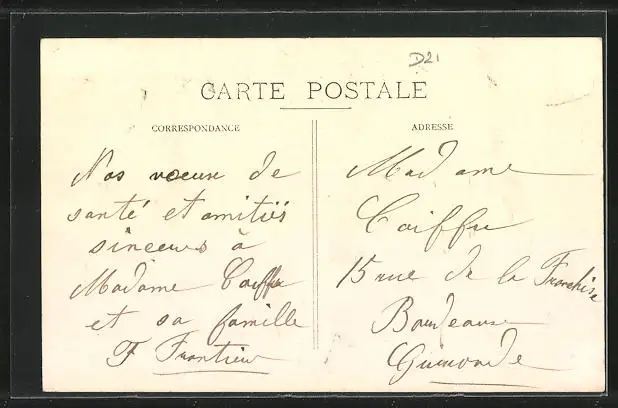 D21
CARTE POSTALE
CORRESPONDANCE
Nos voeux de
santé et amitiés
sincères à
Madame Coiffu
et sa famille
F
ADRESSE
Madame
Coiffu
15 rue de la Franchise
Bordeaux
Gironde